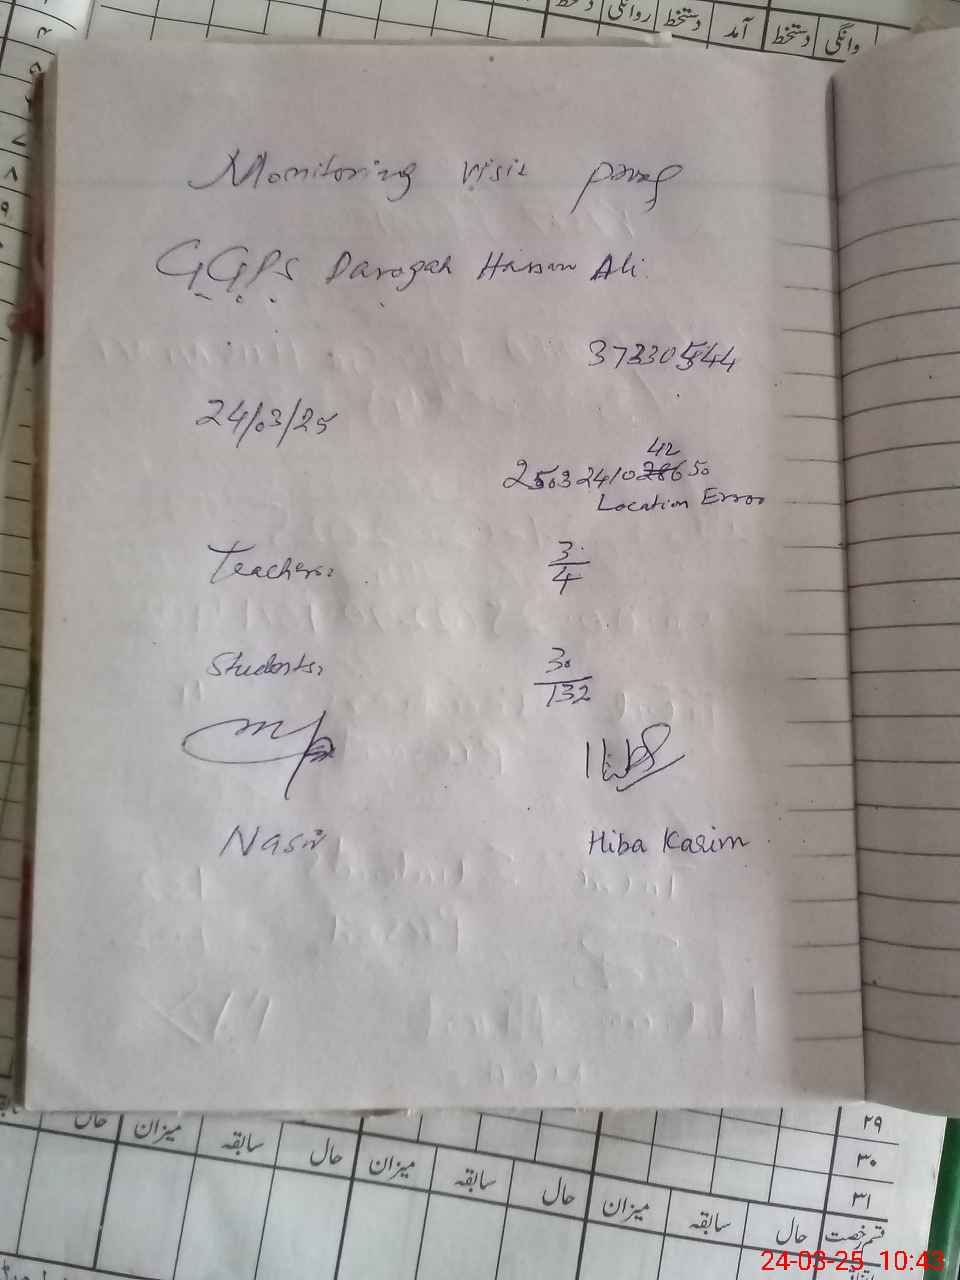 دستخط روانگی دستخط آمد دستخط وانگی
۷
۸
۹
Monitoring visit proof
GGPS Darogah Hassan Ali.
37330544
24/03/25
42
2503241028650
Location Error
Teachers:
3
4
Students:
30
132
Nasir
Hiba Karim
۲۹
۳۰
۳۱
حال میزان سابقہ حال میزان سابقہ حال میزان سابقہ حال قسم رخصت
24-03-25 10:43